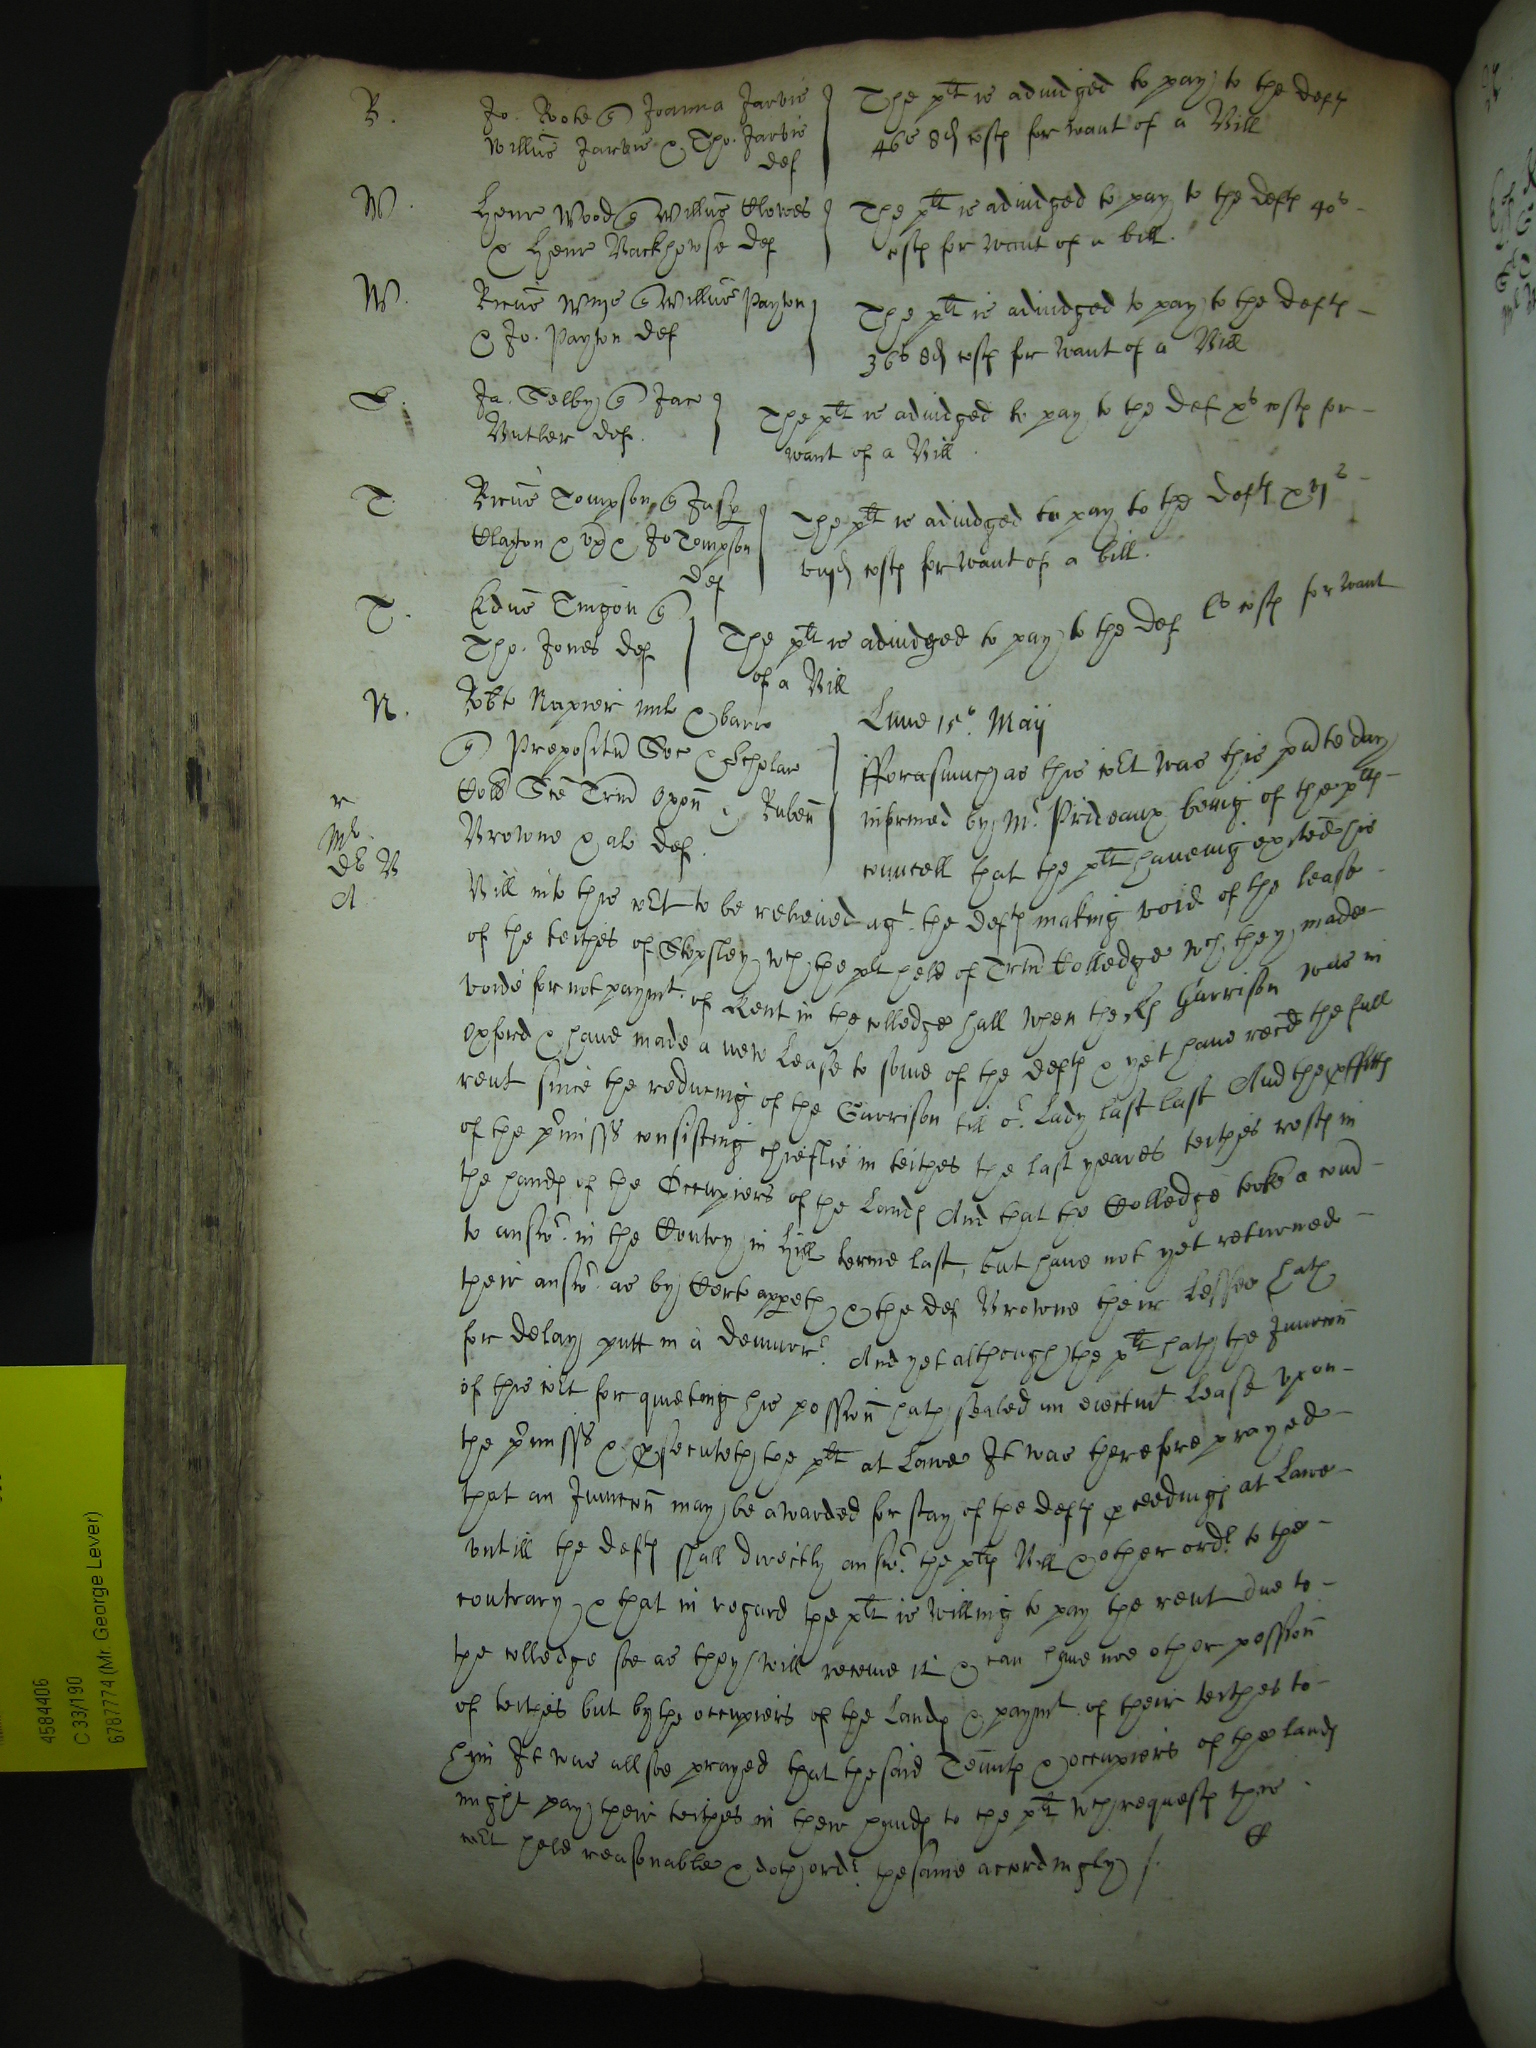 R.
Jo. Roote Joanna Jarvis
Willus Jarvis & Tho. Jarvis
def
The plt is adiudged to pay to the defts
46s 8d costs for want of a Bill
W.
Henr Wood Willus Clowes
& Henr Backhowse def
The plt is adiudged to pay to the defts 40s
costs for want of a bill.
W.
Ricus Willus Payton
& Jo. Payton def
The plt is adiudged to pay to the defts
36s 8d costs for want of a Bill
S.
Ja. Selby Jaco
Butler def.
The plt is adiudged to pay to the def xs costs for
want of a Bill.
T.
Ricus Tompson
Clayton & ux & Jo Tompson
def
The plt is adiudged to pay to the defts
costs for want of a bill.
T.
Edus
Tho. Jones def
The plt is adiudged to pay to the def ls costs for want
of a Bill
N.
Robte Napier milt & barr
Preposit Soc & Scholar
Coll Sce Trin Oxon & Ruben
Browne & als def.
r
Mr.
A
Lune 15o. May
fforasmuch as this coEt was this pnte day
informed by Mr. Prideaux being of the plts
councell that the plt haveing exhited his
Bill into this coEt to be releived agt. the defts making void of the lease
of the teithes of wch the plt held of Trin Colledge wch they made
voide for not paymt. of Rent in the colledge hall when the Ks Garrison was in
Oxford & have made a new Lease to some of the defts & yet have recd the full
rent since the reduceing of the Garrison till or. Lady last last And the pffitts
of the premisss consisting cheiflie in teithes the last yeares teithes rests in
the hands of the Occupiers of the Lands And that the Colledge tooke a com
to answr. in the Contry in Hill terme last, but have not yet returned
their answr. as by Certe appeth & the def Browne their Lessee hath
for delay putt in a demurr. And yet although the plt hath the Iniuncon
of this coEt for quieting his possion hath sealed an eiectmt Lease upon
the premisss & psecuteth the plt at Lawe It was therefore prayed
that an Iniuncon may be awarded for stay of the defts pceedings at Lawe
untill the defts shall directly answr. the plts Bill & other ordr. to the
contrary & that in regard the plt is willing to pay the rent due to
the colledge soe as they will receive it & can have noe other possion
of teithes but by the occupiers of the Lands & paymt. of their teithes to
him It was allsoe prayed that the said Tennts & occupiers of the lands
might pay their teithes in their hands to the plt wch requests this
coEt held reasonable & doth ordr. the same accordingly /.
4584406
C 33/190
6787774 (Mr. George Lever)